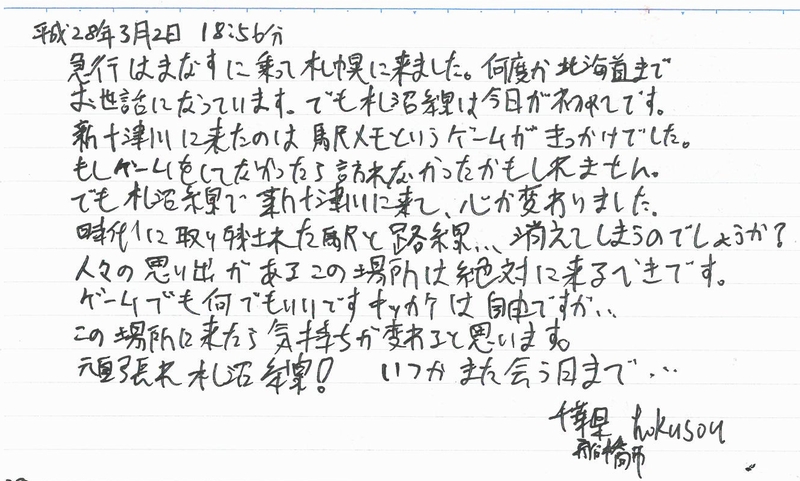 平成28年3月2日 18:56分
急行はまなすに乗って札幌に来ました。何度か北海道まで
お世話になっています。でも札沼線は今日が初めてです。
新十津川に来たのは駅メモというゲームがきっかけでした。
もしゲームをしてなかったら訪れなかったかもしれません。
でも札沼線で新十津川に来て、心が変わりました。
時代に取り残された駅と路線... 消えてしまうのでしょうか?
人々の思い出があるこの場所は絶対に来るべきです。
ゲームでも何でもいいですキッカケは自由ですが...
この場所に来たら気持ちが変わると思います。
頑張れ札沼線! いつかまた会う日まで...
千葉県 hokusou
船橋市